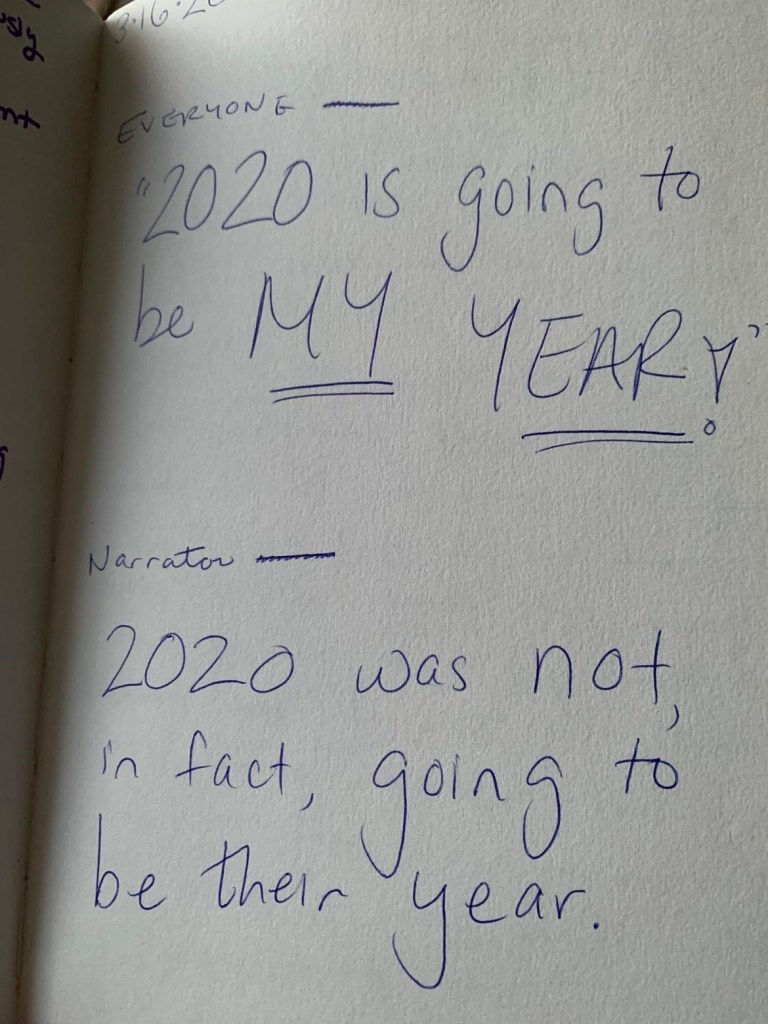 3·16·20
EVERYONE —
"2020 is going to
be MY YEAR!"
Narrator —
2020 was not,
in fact, going to
be their year.